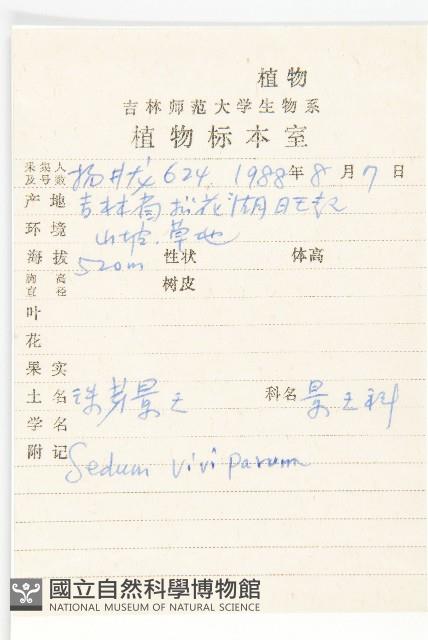 植物
吉林师范大学生物系
植物标本室
采集人及号数 624 1988年8月7日
产地 吉林省松花湖旺起
环境 山坡.草地
海拔 520m 性状 体高
胸高直径 树皮
叶
花
果实
土名 珠芽景天 科名 景天科
学名
附记 Sedum viviparum
國立自然科學博物館
NATIONAL MUSEUM OF NATURAL SCIENCE